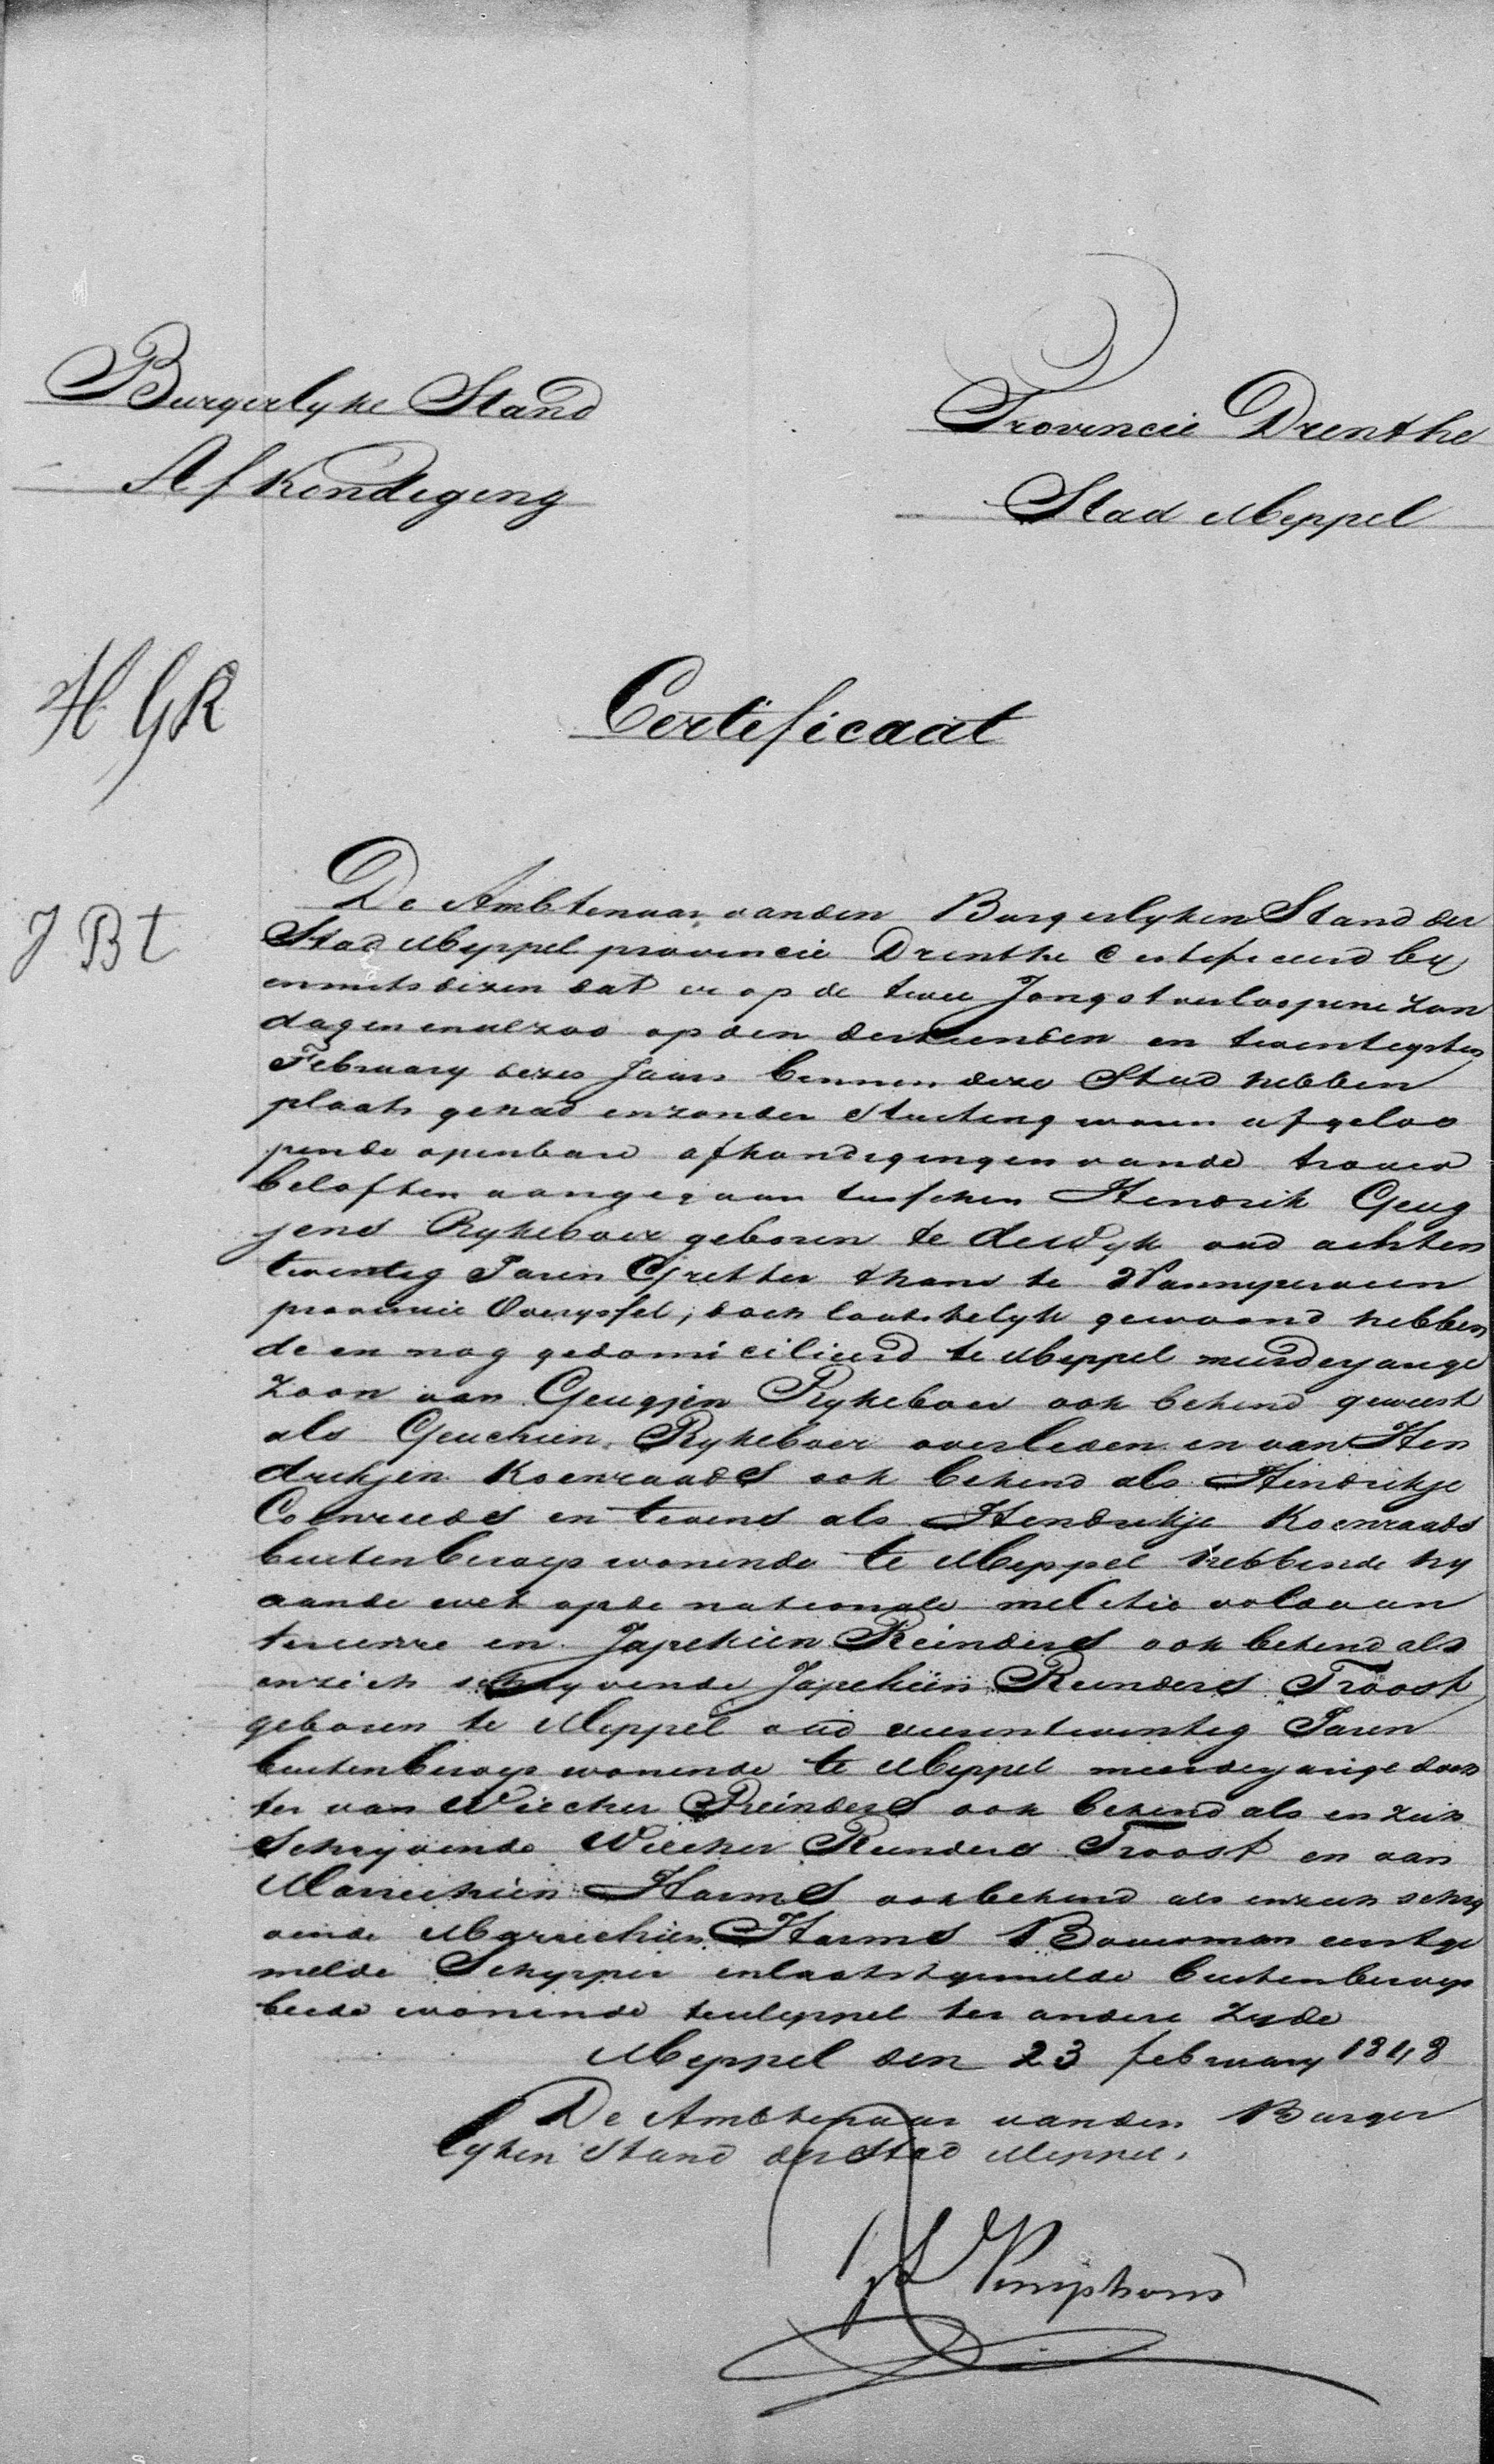 Burgerlyke Stand
Afkondiging
Provincie Drenthe
Stad Meppel
H GR
Certificaat
J Bt
De Ambtenaar vanden Burgerlyken Stand der
Stad Meppel provincie Drenthe Certificeerd by
enmits dezen dat er op de twee Jongstverloopene Zon
dagen enalzoo opden dertienden en twentigsten
February dezes Jaars binnen deze Stad hebben
plaats gehad enzonder Stuiting waren afgeloo
pende openbare afkondigingen vande trouw
beloften aangegaan tusschen Hendrik Geug
jens Rykeboer geboren te dewyk oud achten
twentig Jaren thans te Wanneperveen
provincie Overyssel, doch laatstelyk gewoond hebben
de en nog gedomicilieerd te Meppel meerderjarige
Zoon van Geugjen Rykeboer ook bekend geweest
als Geuchien Rykeboer overleden en van Hen
drikjen Koenraads ook bekend als Hindrikje
Coenraeds en tevens als Hendrikje Koenraads
buitenberoep wonende te Meppel hebbende hy
aande wet opde nationale melitie voldaan
ter eenre en Japchien Reinders ook bekend als
enzich schryvende Japchien Reinders Troost
geboren te Meppel oud vierentwentig Jaren
buitenberoep wonende te Meppel meerderjarige doch
ter van Wiecher Reinders ook bekend als en zich
Schryvende Wiecher Reinders Troost en van
Marrichien Harms ookbekend als enzich schry
vende Marrichien Harms Bouwman eerstge
melde Schipper enlaatstgemelde buitenberoep
beide wonende te Meppel ter andere Zyde
Meppel den 23 february 1848
De Ambtenaar vanden Burger
lyken Stand der Stad Meppel.